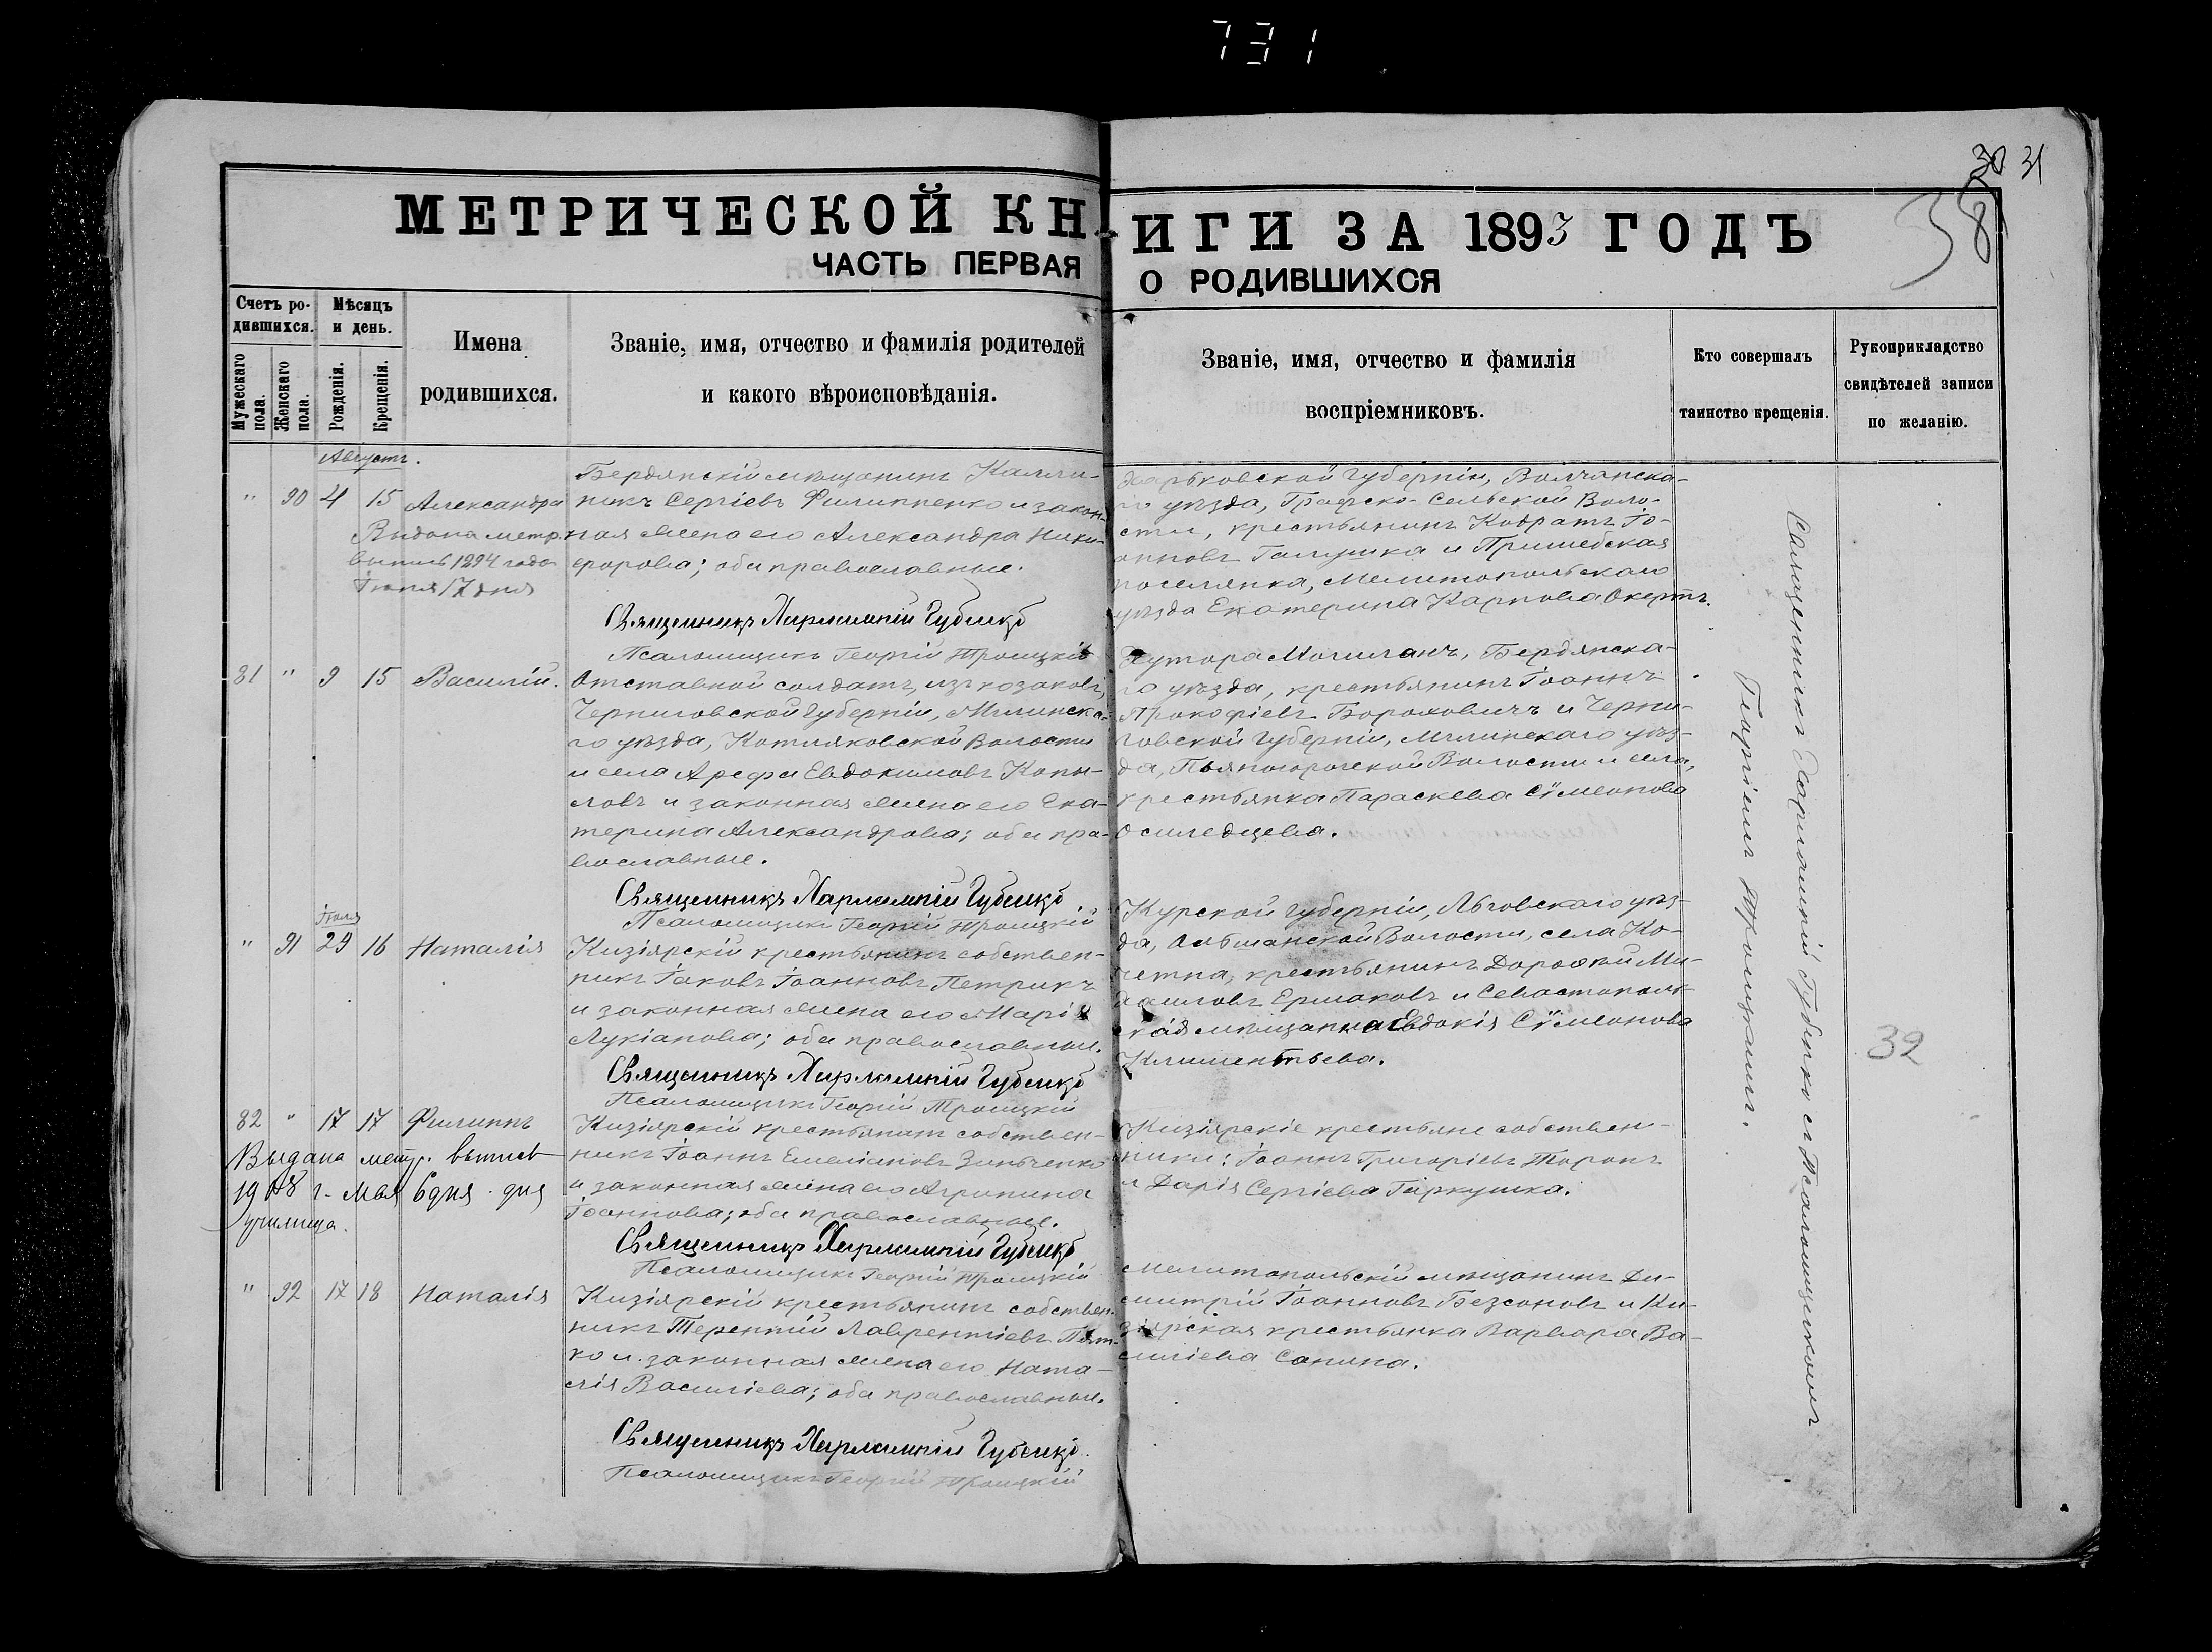 731
30 31
38
МЕТРИЧЕСКОЙ КНИГИ ЗА 1893 ГОДЪ
ЧАСТЬ ПЕРВАЯ О РОДИВШИХСЯ
Счетъ ро-
дившихся.
Мужескаго пола.
Женскаго пола.
Мѣсяцъ
и день.
Рожденія.
Крещенія.
Имена
родившихся.
Званіе, имя, отчество и фамилія родителей
и какого вѣроисповѣданія.
Званіе, имя, отчество и фамилія
воспріемниковъ.
Кто совершалъ
таинство крещенія.
Рукоприкладство
свидѣтелей записи
по желанію.
Августъ.
" 90 4 15 Александра
Выдана метр.
выпись 1894 года
Іюня 17 дня
Бердянскій мѣщанинъ Калли-
никъ Сергіевъ Филиппенко и закон-
ная жена его Александра Ники-
форова; оба православные.
Священникъ Харлампій Губенко
Псаломщикъ Георгій Троицкій
Харьковской губерніи, Волчанска-
го уѣзда, Графско-Сельской Воло-
сти, крестьянинъ Кодратъ Іо-
анновъ Галушка и Пришибская
поселянка, Мелитопольскаго
уѣзда Екатерина Карпова Окертъ.
81 " 9 15 Василій.
Отставной солдатъ, изъ козаковъ,
Черниговской губерніи, Мглинска-
го уѣзда, Котляковской Волости
и села Арефа Евдокимовъ Копы-
ловъ и законная жена его Ека-
терина Александрова; оба пра-
вославные.
Священникъ Харлампій Губенко
Псаломщикъ Георгій Троицкій
Хутора Мошиганъ, Бердянска-
го уѣзда, крестьянинъ Іоаннъ
Прокофіевъ Бороховичъ и Черни-
говской губерніи, Мглинскаго уѣз-
да, Волости и села,
крестьянка Параскева Сѵмеонова
Осмледцева.
Іюля
" 91 29 16 Наталія
Кизіярскій крестьянинъ собствен-
никъ Іаковъ Іоанновъ Петрикъ
и законная жена его Марія
Лукіанова; оба православные.
Священникъ Харлампій Губенко
Псаломщикъ Георгій Троицкій
Курской губерніи, Льговскаго уѣз-
да, Ольшанской Волости, села Ко-
четна, крестьянинъ Дороѳей Ми-
хаиловъ Ермаковъ и Севастополь-
ская мѣщанка Евдокія Сѵмеонова
Климентьева.
82 " 17 17 Филиппъ
Выдана метр. выпись
1908 г. мая 6 дня для
училища.
Кизіярскій крестьянинъ собствен-
никъ Іоаннъ Емеліановъ Зинченко
и законная жена его Агрипина
Іоаннова; оба православные.
Священникъ Харлампій Губенко
Псаломщикъ Георгій Троицкій
Кизіярскіе крестьяне собствен-
ники: Іоаннъ Григоріевъ Таранъ
и Дарія Сергіева Гаркушка.
" 92 17 18 Наталія
Кизіярскій крестьянинъ собствен-
никъ Терентій Лаврентіевъ Пят-
ко и законная жена его Ната-
лія Василіева; оба православные.
Священникъ Харлампій Губенко.
Псаломщикъ Георгій Троицкій
Мелитопольскій мѣщанинъ Ди-
митрій Іоанновъ Безсоновъ и Ки-
зіярская крестьянка Варвара Ва-
силіева Сапина.
Священникъ Харлампій Губенко съ Псаломщикомъ
Георгіемъ Троицкимъ.
32